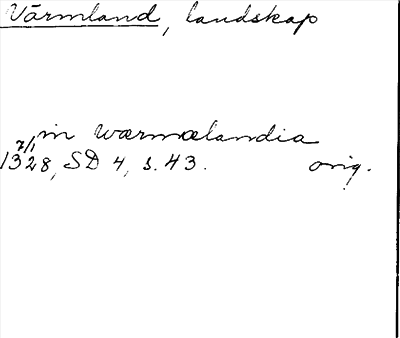 Värmland, landskap
in wærmælandia
7/1
1328, SD 4, s. 43. orig.